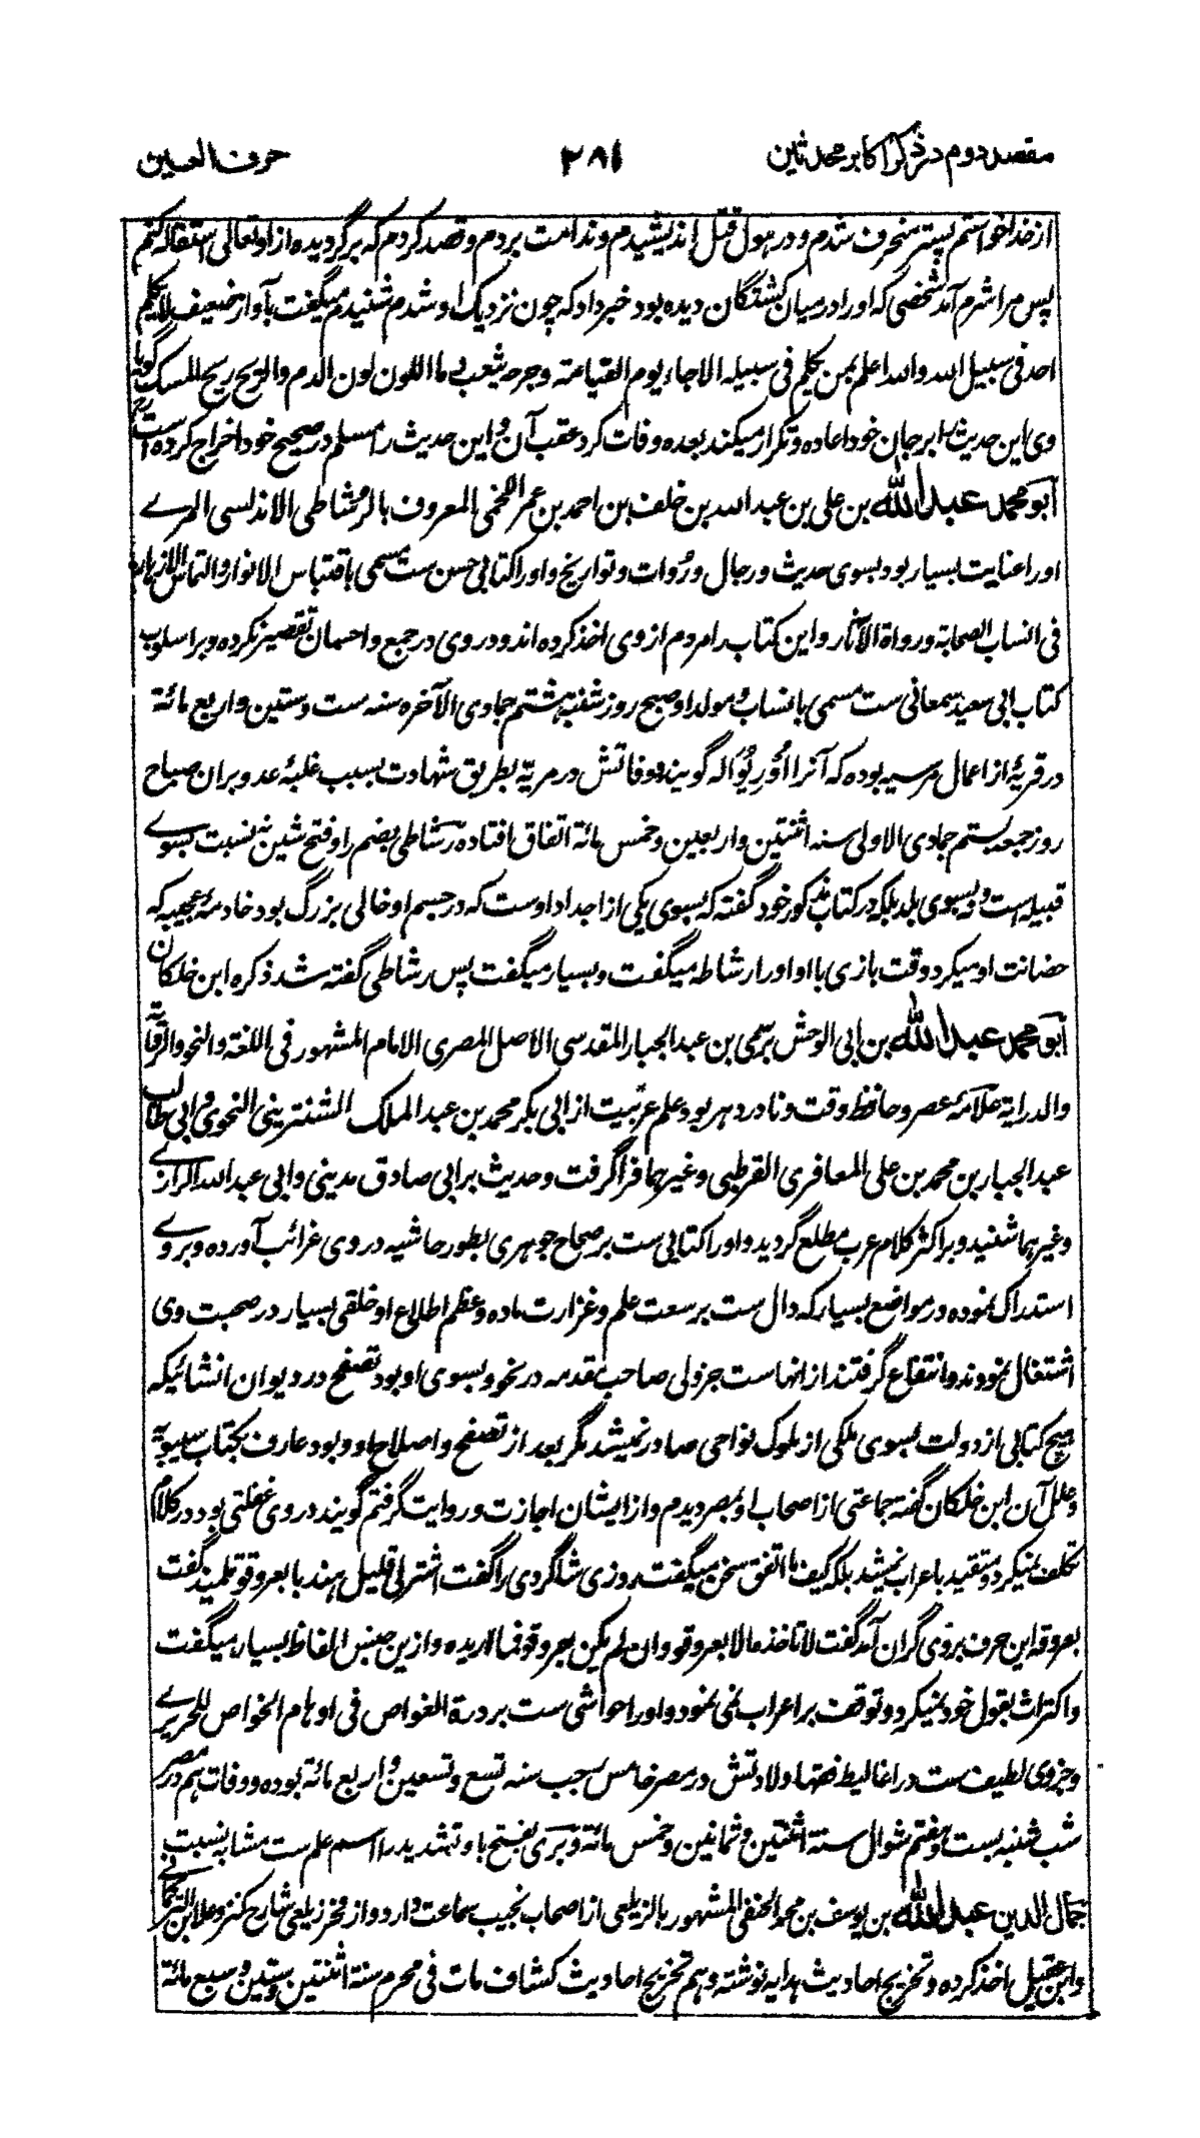 مقصد دوم در ذکر اکابر محدثین ۲۸۱ حرف العین
از خدا خواستم پستر منحرف شدم و در هول قتل اندیشیدم و ندامت بردم و قصد کردم که برگردیده از او تعالی استقاله کنم
پس مرا شرم آمد شخصی که او را در میان کشتگان دیده بود خبر داد که چون نزدیک او شدم شنیدم میگفت بآواز ضعیف لا یکلم
احد فی سبیل الله والله اعلم بمن یکلم فی سبیله الا جاء یوم القیامة وجرحه یثعب دما اللون لون الدم والریح ریح المسک گویا
وی این حدیث را بر جان خود اعاده و تکرار میکند بعده وفات کرد عقب آن و این حدیث را مسلم در صحیح خود اخراج کرده است رح
ابو محمد عبد الله بن علی بن عبد الله بن خلف بن احمد بن عمر اللخمی المعروف بالرشاطی الاندلسی المرے
او را عنایت بسیار بود بسوی حدیث و رجال و رُوات و تواریخ و او را کتابی حسن ست مسمی باقتباس الانوار والتماس الازهار
فی انساب الصحابة ورواة الآثار و این کتاب را مردم از وی اخذ کرده اند و در وی در جمع و احسان تقصیر نکرده و بر اسلوب
کتاب ابی سعید سمعانی ست مسمی بانساب و مولد او صبح روز شنبه هشتم جمادی الآخره سنه ست وستین واربع مائة
در قریهٔ از اعمال مرسیه بوده که آنرا اُورِیُوَاله گویند و وفاتش در مریّه بطریق شهادت بسبب غلبهٔ عدو بران صباح
روز جمعه بستم جمادی الاولی سنه اثنتین واربعین وخمس مائة اتفاق افتاده رشاطی بضم را و فتح شین نسبت بسوے
قبیله است و نه بسوی بلد بلکه در کتاب مذکور خود گفته که بسوی یکی از اجداد اوست که در جسم او خالی بزرگ بود خادمهٔ عجمیه که
حضانت او میکرد وقت بازی با او او را رشاطه میگفت و بسیار میگفت پس رشاطی گفته شد ذکره ابن خلکان
ابو محمد عبد الله بن ابی الوحش برّی بن عبد الجبار المقدسی الاصل المصری الامام المشهور فی اللغة والنحو والروایة
والدرایة علامهٔ عصر و حافظ وقت و نادر دهر بود علم عربیت از ابی بکر محمد بن عبد الملک الشنترینی النحوی و ابی طالب
عبد الجبار بن محمد بن علی المعافری القرطبی وغیرهما فرا گرفت و حدیث بر ابی صادق مدینی وابی عبد الله الرازے
وغیرهما شنید و بر اکثر کلام عرب مطلع گردید و او را کتابی ست بر صحاح جوهری بطور حاشیه در وی غرائب آورده و بروے
استدراک نموده در مواضع بسیار که دال ست بر سعت علم و غزارت ماده و عظم اطلاع او خلقی بسیار در صحبت وی
اشتغال نمودند و انتفاع گرفتند از انهاست جزولی صاحب مقدمه در نحو و بسوی او بود تصفح در دیوان انشا ئیکه
هیچ کتابی از دولت بسوی ملکی از ملوک نواحی صادر نمیشد مگر بعد از تصفح و اصلاح او و بود عارف بکتاب سیبویه
و علل آن ابن خلکان گفته جماعتی از اصحاب او بمصر دیدم و از ایشان اجازت و روایت گرفتم گویند در وی غفلتی بود در کلام
تکلف نمیکرد و متقید باعراب نمیشد بلکه کیف ما اتفق سخن میگفت روزی شاگردی را گفت اشتر لی قلیل هندبا بعروقو تلمیذ گفت
بعروقه این حرف بروی گران آمد گفت لا تاخذه الا بعروقو وان لم یکن بعروقو فما اریده و ازین جنس الفاظ بسیار میگفت
و اکتراث بقول خود نمیکرد و توقف بر اعراب نمی نمود و او را حواشی ست بر درة الغواص فی اوهام الخواص للحریرے
و جزوی لطیف ست در اغالیط فقها ولادتش در مصر خامس رجب سنه تسع وتسعین واربع مائة بوده و وفات هم در مصر
شب شنبه بست و هفتم شوال سنة اثنتین وثمانین وخمس مائة و بَرّی بفتح با و تشدید را اسم علم ست مشابه نسبت
جمال الدین عبد الله بن یوسف بن محمد الحنفی المشهور بالزیلعی از اصحاب نجیب سماعت دارد و از فخر زیلعی شارح کنز و علا ابن الترکمانے
وابن عقیل اخذ کرده و تخریج احادیث هدایه نوشته و هم تخریج احادیث کشاف مات فی محرم سنة اثنتین وستین وسبع مائة